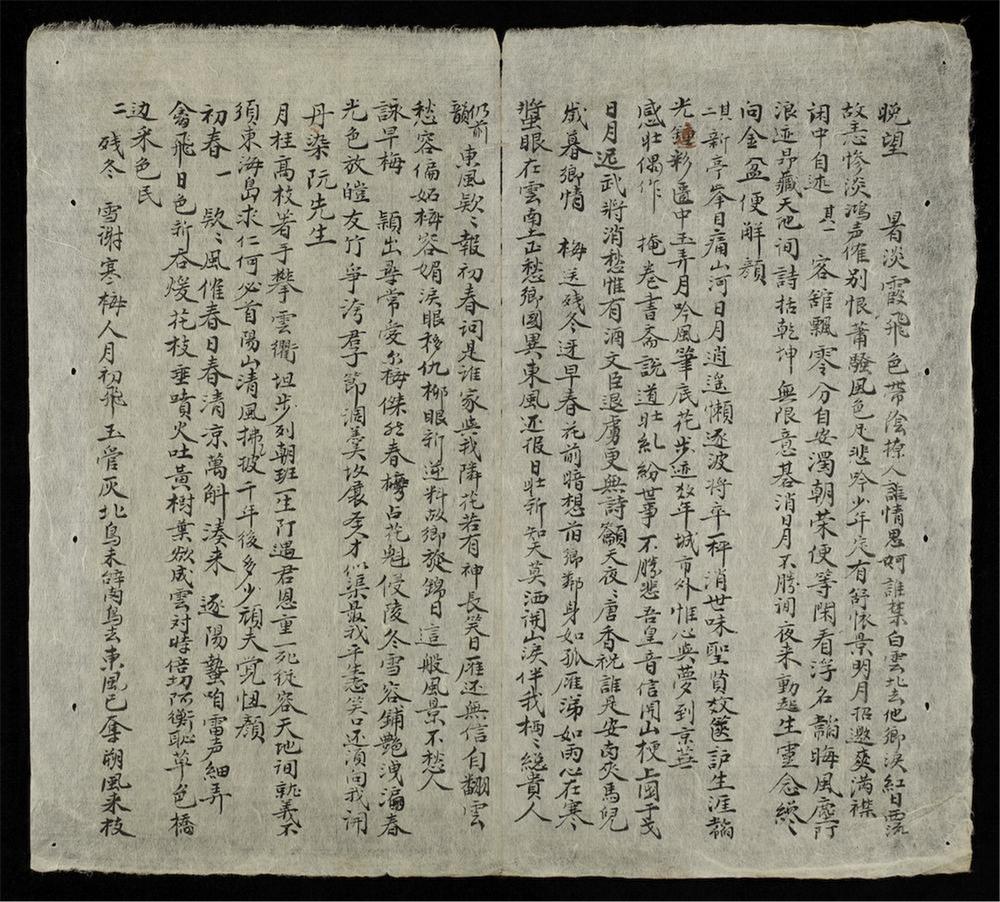 晚望 暑淡霞飛色帶陰撩人誰情思婀誰禁白雲北去他鄉淚紅日西流
故恙惨淡鴻声催别恨蕭騷風色足悲吟少年定有舒懷景明月招邀爽满襟
闲中自述 其一 容舘飄零分自安濁朝荣便等閑看浮名韜晦風塵阿
浪迹昂藏天地间詩括乾坤無限意碁消日月不勝间夜来動起生靈念縂〻
向金盆便觧顔
其二 新亭举目痛山河日月逍遥懒逐波将卒一枰消世味聖賢效篋託生涯韜
光鏟彩匵中玉弄月吟風筆底花步迹数年城市外惟心與夢到京華
感壮偶作 掩卷書斋説道壮乱紛世事不勝悲吾皇音信関山梗上国干戈
日月遲武将消愁惟有酒文臣退虜更無詩籲天夜〻香祝誰是安南灭馬兒
歲暮鄉情 梅送残冬迓早春花前暗想旧鄉鄰身如孤雁涕如雨心在寒
螿眼在雲南土正愁鄉國異東風还报日壮新知天莫洒開山淚伴我栖〻總貴人
仍前韻 東風欵〻報初春问是誰家與我隣花若有神長笑日雁还無信自翻雲
愁容偏妬梅容媚淚眼移仇柳眼新逆料故鄉旋錦日這般風景不愁人
詠早梅 穎出尋常受尔梅傑於春榜占花魁侵陵冬雪容鋪艷洩漏春
光色放皚友竹争誇君子節调羹攸讓聖才似渠最我平生志笑口还須向我開
丹染阮先生
月桂高枝着手攀雲衢坦步列朝班一生际遇君恩重一死從容天地间執義不
須東海島求仁何必首陽山清風拂玻千年後多少頑夫覚忸顔
初春一 欵〻風催春日春清京萬斛湊来 逐陽蟄咱雷声細弄
翕飛日色新吞煖花枝垂噴火吐黄樹葉欲成雲対時倍切阿衡恥草色橋
边采色民
二 残冬 雪谢寒梅人月初飛玉管灰北鳥未辤南鳥去東風已奪朔風来枝